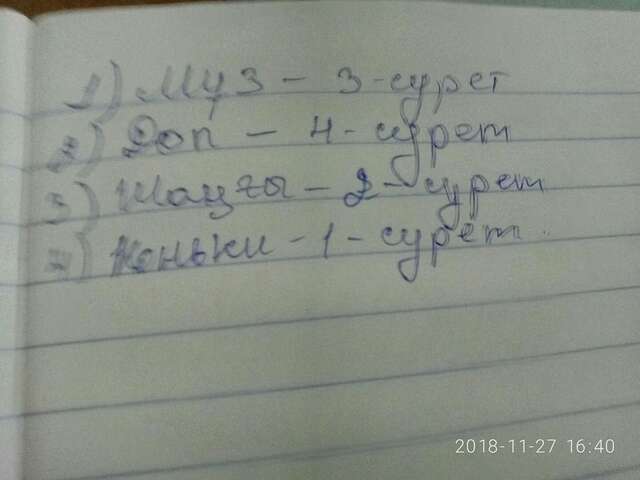 1) Мұз - 3-сурет
2) Доп - 4-сурет
3) Шаңғы - 2-сурет
4) Коньки - 1-сурет.
2018-11-27 16:40